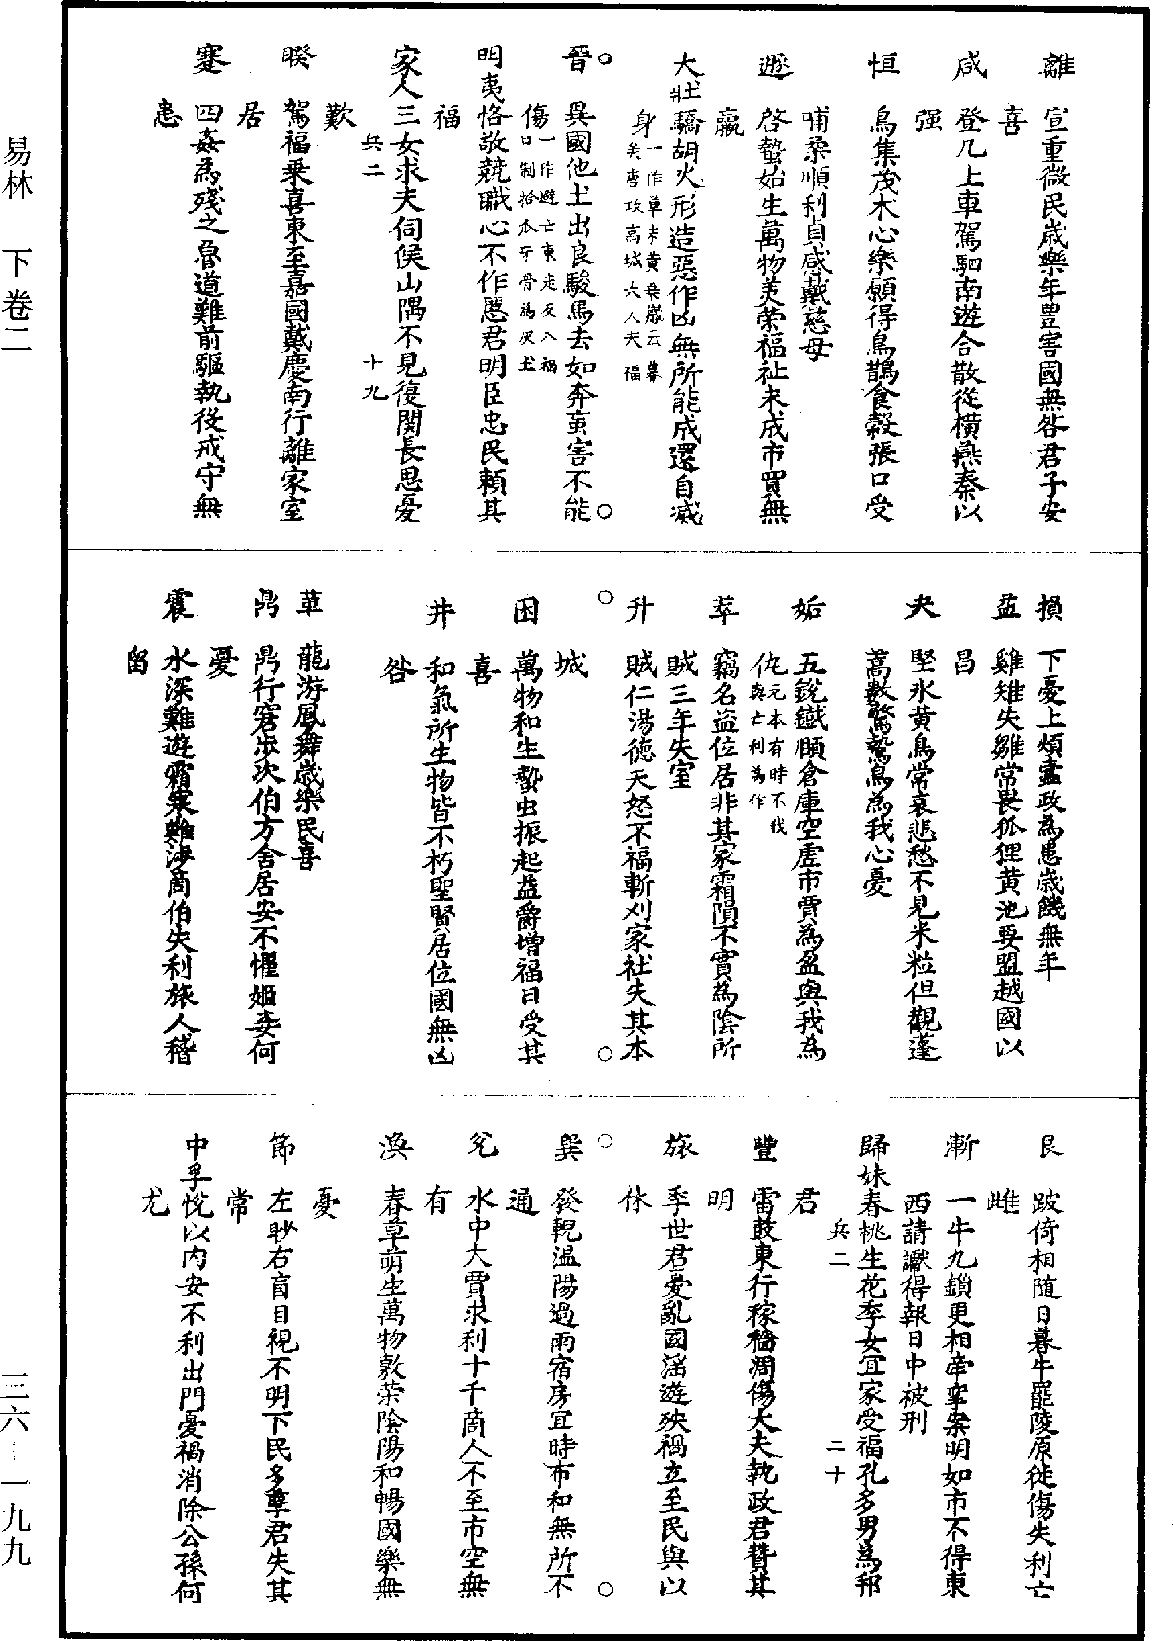 離　宣重微民歲樂年豐害國無咎君子安
喜
咸　登几上車駕駟南遊合散從橫燕秦以
强
恒　鳥集茂木心樂願得鳥鵲食穀張口受
哺桑順利貞感戴慈母
遯　啓蟄始生萬物美榮福祉未成市買無
贏
大壯驕胡火形造惡作凶無所能成還自滅
身一作草木黃桑歲云暮
矣唐攻高城大人夫福
晉　異國他土出良駿馬去如奔䖟害不能
傷一作避亡東走反入禍
口制拾本牙骨為灰土
明夷恪敬兢職心不作慝君明臣忠民賴其
福
家人三女求夫伺侯山隅不見復関長思憂
兵二　十九
歎
睽　駕福乗喜東至嘉國戴慶南行離家室
居
蹇　四姦為殘之魯道難前驅執役戒守無
恙
損　下憂上煩蠧政為患歲饑無年
益　雞雉失雛常畏狐狸黄池要盟越國以
昌
夬　堅氷黄鳥常哀悲愁不見米粒但觀蓬
蒿數驚鷙鳥為我心憂
姤　五銳鐵頤倉庫空虛市賈為盈與我為
仇元本有時不我
與亡利為作
萃　竊名益位居非其家霜隕不實為陰所
賊三年失室
升　賊仁湯德天怒不福斬刈家社失其本
城
困　萬物和生蟄虫振起益爵增福日受其
喜
井　和氣所生物皆不朽聖賢居位國無凶
咎
革　龍游鳳舞歲樂民喜
鼎　鼎行窘步次伯方舍居安不懼姬妾何
憂
震　水深難遊霜寒難涉商伯失利旅人稽
留
艮　跛倚相隨日暮牛罷陵原徙傷失利亡
雌
漸　一牛九鎖更相牽挛案明如市不得東
西請讞得報日中被刑
歸妹春桃生花季女宜家受福孔多男為邦
兵二　二十
君
豐　雷鼓東行稼穡凋傷大夫執政君贊其
明
旅　季世君憂亂國淫遊殃禍立至民與以
休
巽　發軔温陽過雨宿房宜時布和無所不
通
兌　水中大賈求利十千商人不至市空無
有
渙　春草萌生萬物敷榮陰陽和暢國樂無
憂
節　左眇右盲目視不明下民多孽君失其
常
中孚悅以内安不利出門憂禍消除公孫何
尤
易林　下卷二　三六—一九九